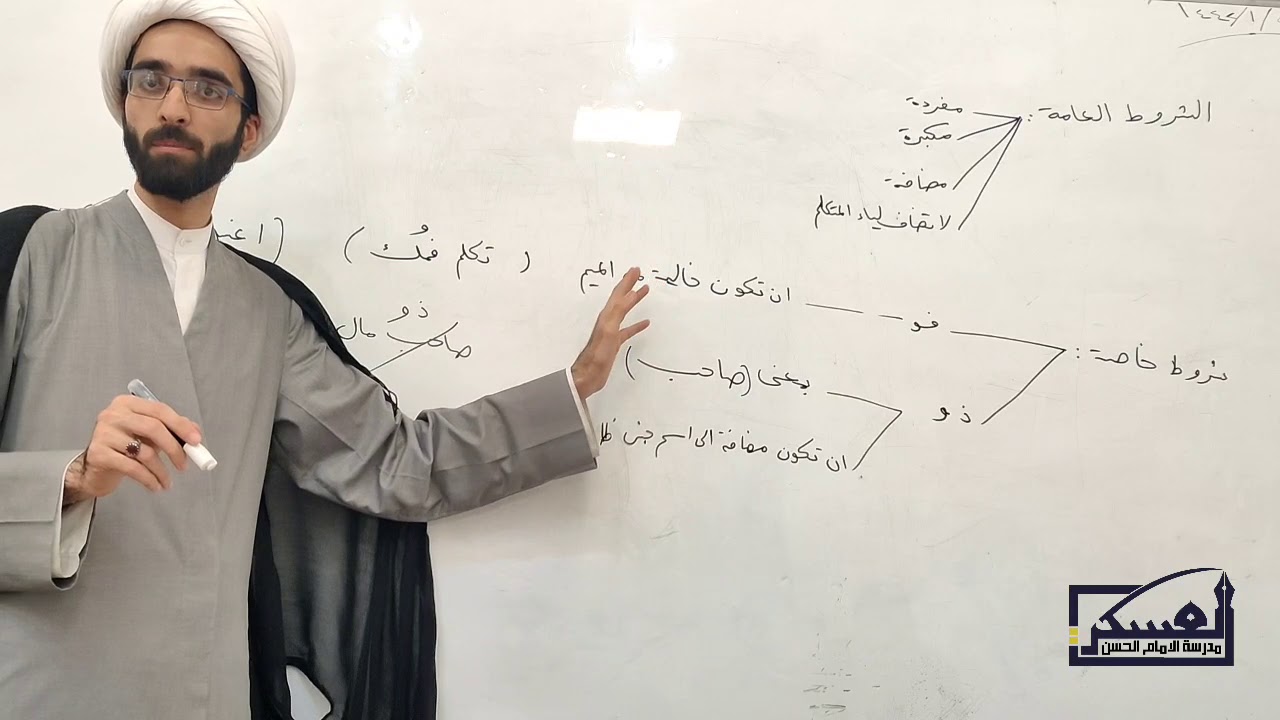 ١٤٤٢/١/
الشروط العامة :
مفردة
مكبرة
مضافة
لا تضاف لياء المتكلم
شروط خاصة :
فو
ان تكون خالية من الميم ( تكلم فمُك ) (
ذو
بمعنى (صاحب)
ان تكون مضافة الى اسم جنس
ذو
صاحب مال
العسكري
مدرسة الامام الحسن